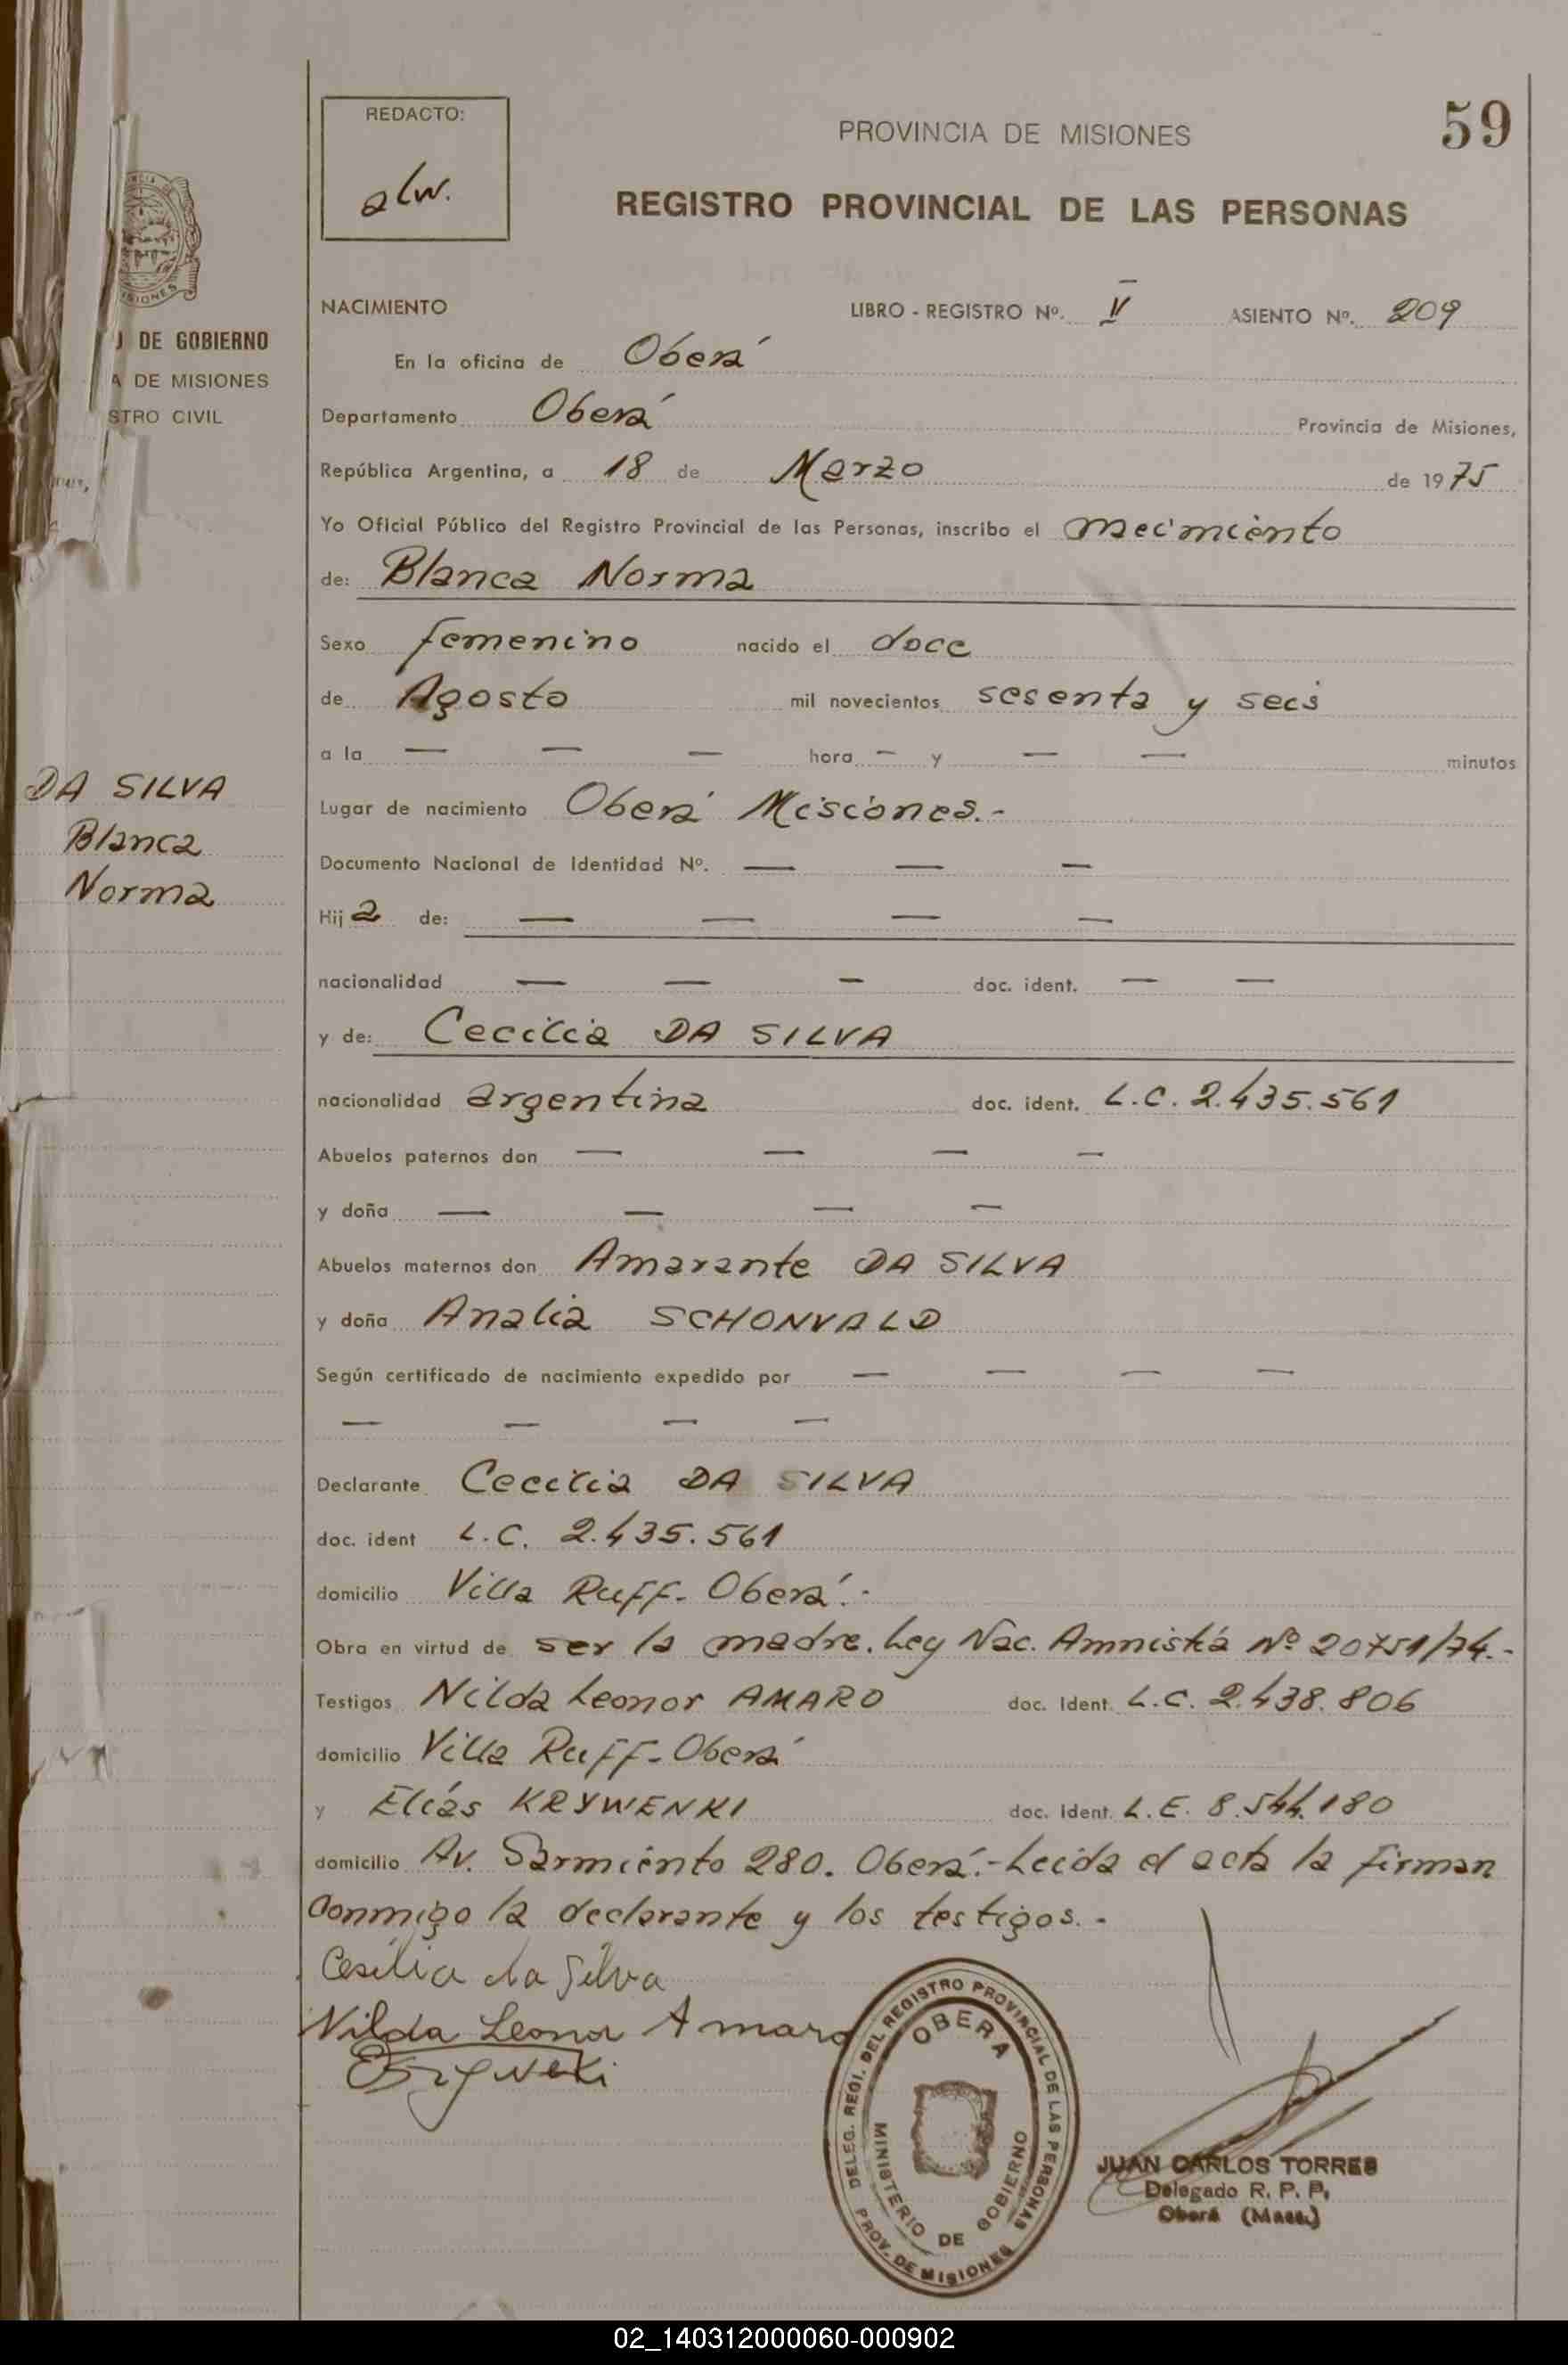 REDACTO:
alw.
PROVINCIA DE MISIONES
59
REGISTRO PROVINCIAL DE LAS PERSONAS
DE GOBIERNO
A DE MISIONES
STRO CIVIL
NACIMIENTO LIBRO - REGISTRO Nº. V ASIENTO Nº. 209
En la oficina de Oberá
Departamento Oberá Provincia de Misiones,
República Argentina, a 18 de Marzo de 1975
Yo Oficial Público del Registro Provincial de las Personas, inscribo el nacimiento
de: Blanca Norma
Sexo femenino nacido el doce
de Agosto mil novecientos sesenta y seis
a la — — — hora — y — — minutos
DA SILVA
Blanca
Norma
Lugar de nacimiento Oberá Misiones.-
Documento Nacional de Identidad Nº. — — —
Hija de: — — — —
nacionalidad — — — doc. ident. — —
y de: Cecilia DA SILVA
nacionalidad argentina doc. ident. L.C. 2.435.561
Abuelos paternos don — — — —
y doña — — — —
Abuelos maternos don Amarante DA SILVA
y doña Analia SCHONVALD
Según certificado de nacimiento expedido por — — — —
— — — —
Declarante Cecilia DA SILVA
doc. ident L.C. 2.435.561
domicilio Villa Ruff- Oberá.-
Obra en virtud de ser la madre. Ley Nac. Amnistía Nº 20751/74.-
Testigos Nilda Leonor AMARO doc. Ident. L.C. 2.438.806
domicilio Villa Ruff- Oberá
y Elías KRYWENKI doc. Ident. L.E. 8.544.180
domicilio Av. Sarmiento 280. Oberá.- Leida el acta la firman
conmigo la declarante y los testigos.-
Cesilia da Silva
Nilda Leonor Amaro
DELEG. REGI. DEL REGISTRO PROVINCIAL DE LAS PERSONAS
OBERA
MINISTERIO DE GOBIERNO
PROV. DE MISIONES
JUAN CARLOS TORRES
Delegado R. P. P.
Oberá (Mnes.)
02_140312000060-000902